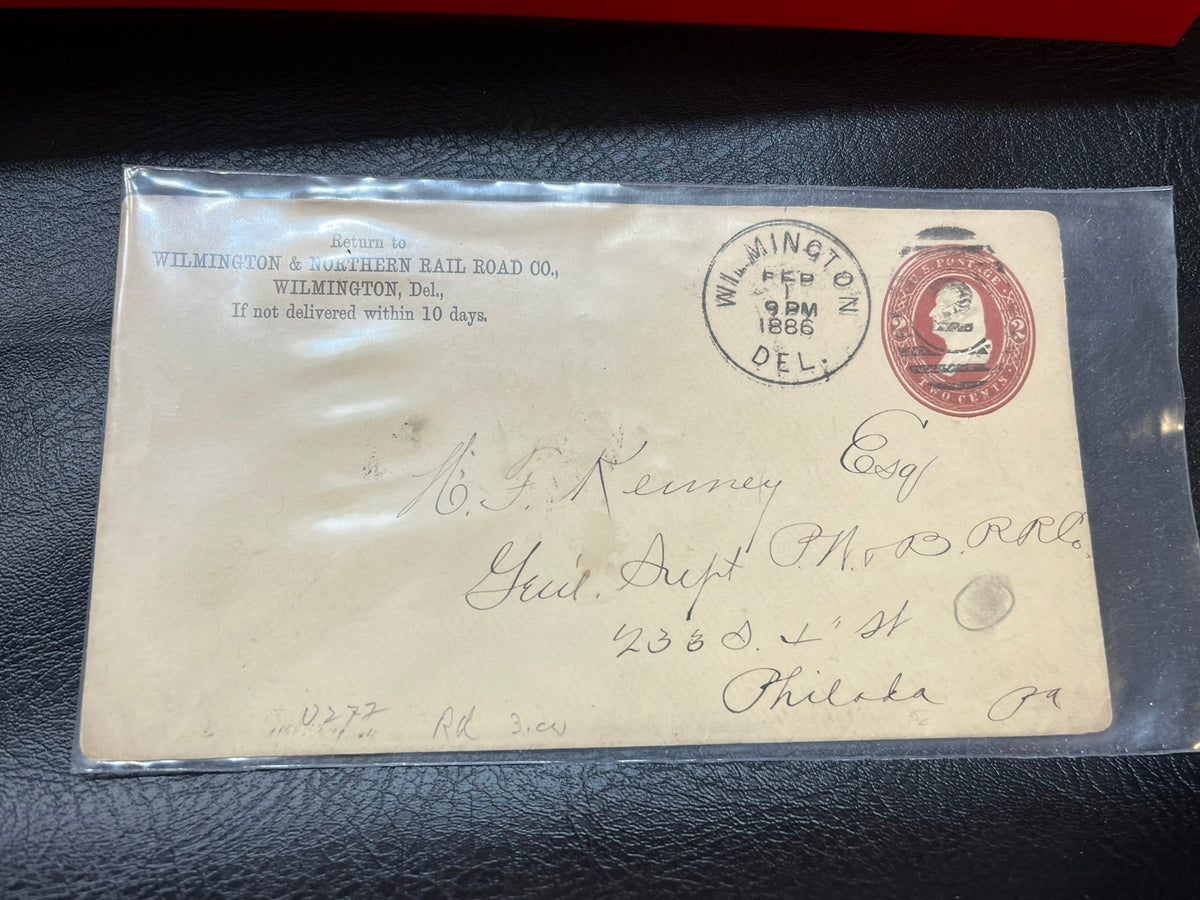 Return to
WILMINGTON & NORTHERN RAIL ROAD CO.,
WILMINGTON, Del.,
If not delivered within 10 days.
WILMINGTON
FEB
1
9 PM
1886
DEL.
U.S. POSTAGE
2 2
TWO CENTS
H. F. Kenney Esq
Genl. Supt P. W. & B. R R Co.
233 S. 4" St
Philada Pa
U277 Rd 3.00